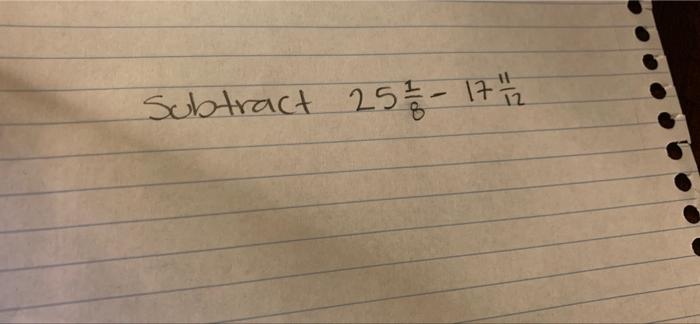 Subtract 25 1/8 - 17 11/12